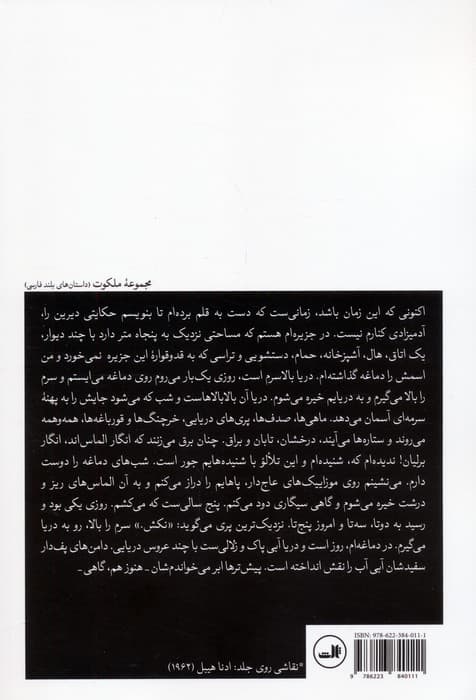 مجموعهٔ ملکوت (داستان‌های بلند فارسی)
اکنونی که این زمان باشد، زمانی‌ست که دست به قلم برده‌ام تا بنویسم حکایتی دیرین را،
آدمیزادی کنارم نیست. در جزیره‌ام هستم که مساحتی نزدیک به پنجاه متر دارد با چند دیوار،
یک اتاق، هال، آشپزخانه، حمام، دستشویی و تراسی که به قدوقوارهٔ این جزیره نمی‌خورد و من
اسمش را دماغه گذاشته‌ام. دریا بالاسرم است، روزی یک‌بار می‌روم روی دماغه می‌ایستم و سرم
را بالا می‌گیرم و به دریایم خیره می‌شوم. دریا آن بالابالاهاست و شب که می‌شود جایش را به پهنهٔ
سرمه‌ای آسمان می‌دهد. ماهی‌ها، صدف‌ها، پری‌های دریایی، خرچنگ‌ها و قورباغه‌ها، همه‌وهمه
می‌روند و ستاره‌ها می‌آیند، درخشان، تابان و براق. چنان برق می‌زنند که انگار الماس‌اند، انگار
برلیان! ندیده‌ام که، شنیده‌ام و این تلألؤ با شنیده‌هایم جور است. شب‌های دماغه را دوست
دارم. می‌نشینم روی موزاییک‌های عاج‌دار، پاهایم را دراز می‌کنم و به آن الماس‌های ریز و
درشت خیره می‌شوم و گاهی سیگاری دود می‌کنم. پنج سالی‌ست که می‌کشم. روزی یکی بود و
رسید به دوتا، سه‌تا و امروز پنج‌تا. نزدیک‌ترین پری می‌گوید: «نکش.» سرم را بالا، رو به دریا
می‌گیرم. در دماغه‌ام، روز است و دریا آبی پاک و زلالی‌ست با چند عروس دریایی. دامن‌های پف‌دار
سفیدشان آبی آب را نقش انداخته است. پیش‌ترها ابر می‌خواندم‌شان ـ هنوز هم، گاهی ـ
*نقاشی روی جلد: ادنا هیبل (۱۹۶۲)
ثالث
ISBN: 978-622-384-011-1
9 786223 840111